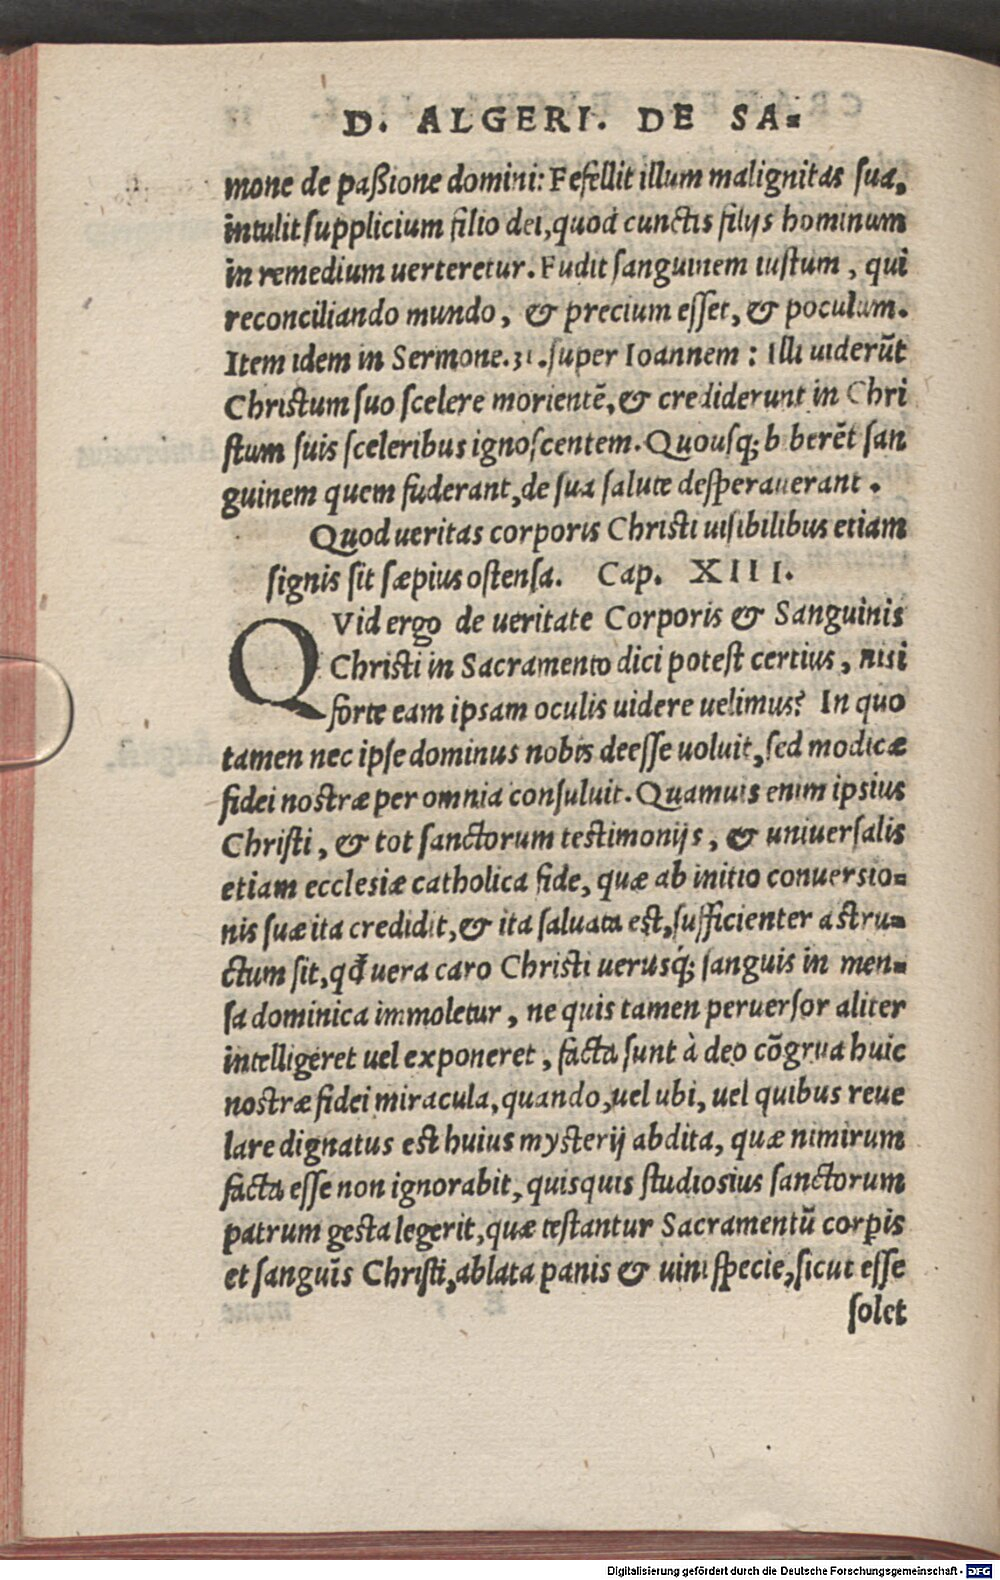 D. ALGERI. DE SA-
mone de paßione domini: Fefellit illum malignitas sua,
intulit supplicium filio dei, quod cunctis filijs hominum
in remedium uerteretur. Fudit sanguinem iustum, qui
reconciliando mundo, & precium esset, & poculum.
Item idem in Sermone.31.super Ioannem: Illi uiderūt
Christum suo scelere morientē, & crediderunt in Chri
stum suis sceleribus ignoscentem. Quousq; biberēt san
guinem quem fuderant, de sua salute desperauerant.
Quod ueritas corporis Christi uisibilibus etiam
signis sit sæpius ostensa. Cap. XIII.
QVid ergo de ueritate Corporis & Sanguinis
Christi in Sacramento dici potest certius, nisi
forte eam ipsam oculis uidere uelimus? In quo
tamen nec ipse dominus nobis deesse uoluit, sed modicæ
fidei nostræ per omnia consuluit. Quamuis enim ipsius
Christi, & tot sanctorum testimonijs, & uniuersalis
etiam ecclesiæ catholica fide, quæ ab initio conuersio-
nis suæ ita credidit, & ita saluata est, sufficienter astru-
ctum sit, qđ uera caro Christi uerusq́; sanguis in men-
sa dominica immoletur, ne quis tamen peruersor aliter
intelligeret uel exponeret, facta sunt à deo cōgrua huic
nostræ fidei miracula, quando, uel ubi, uel quibus reue
lare dignatus est huius mysterij abdita, quæ nimirum
facta esse non ignorabit, quisquis studiosius sanctorum
patrum gesta legerit, quæ testantur Sacramentū corꝑis
et sanguīs Christi, ablata panis & uini specie, sicut esse
solet
Digitalisierung gefördert durch die Deutsche Forschungsgemeinschaft - DFG